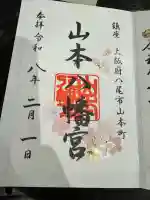 鎮座 大阪府八尾市山本町
山本八幡宮
奉拝 令和八年二月一日